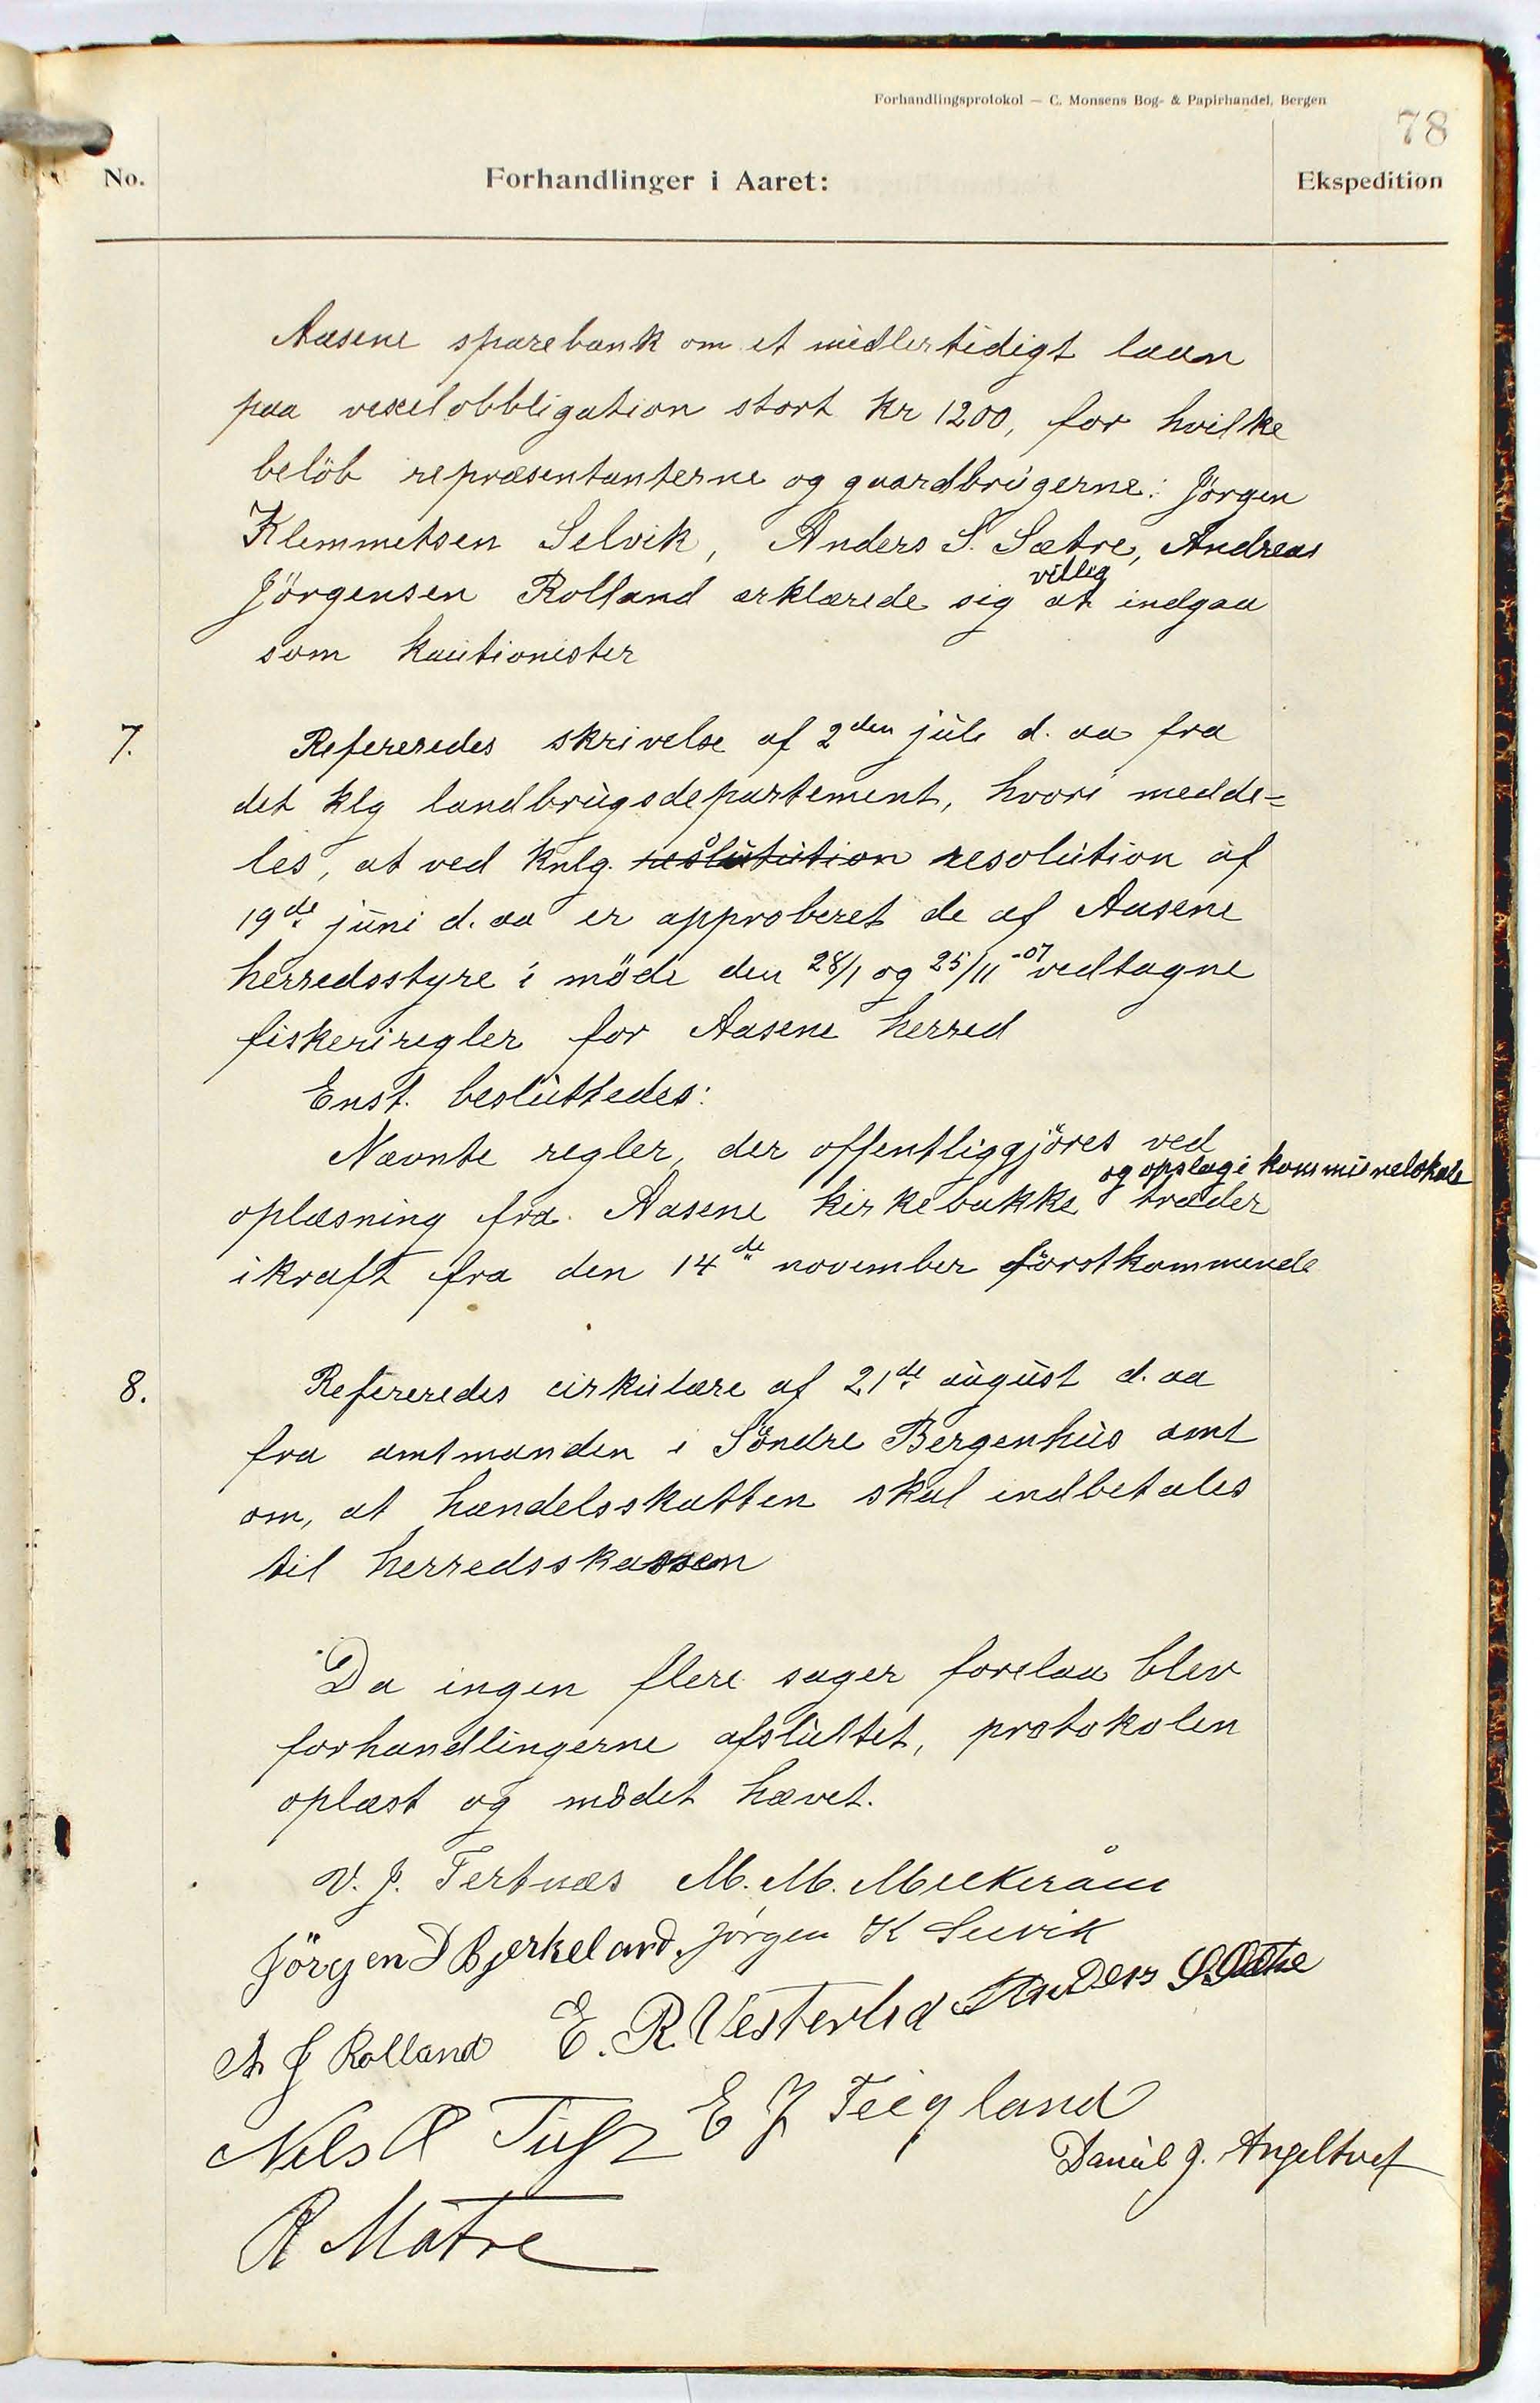 Forhandlingsprotokol — C. Monsens Bog- & Papirhandel, Bergen
78
No. Forhandlinger i Aaret: Ekspedition
Aasene sparebank om et midlertidigt laan
paa vexelobbligation stort kr 1200, for hvilke
belöb repræsentanterne og gaardbrugerne: Jörgen
Klemmetsen Selvik, Anders S. Sætre, Andreas
villig
Jörgensen Rolland erklærede sig at indgaa
som kautionister
7. Refereredes skrivelse af 2den juli d. aa fra
det klg landbrugsdepartement, hvori medde=
les, at ved knlg. reslutution resolution af
19de juni d. aa er approberet de af Aasene
herredsstyre i möde den 28/1 og 25/11 -07 vedtagne
fiskeriregler for Aasene herred
Enst. besluttedes:
Nævnte regler, der offentliggjöres ved
og opslag i kommunelokale
oplæsning fra Aasene kirkebakke træder
ikraft fra den 14de november förstkommende
8. Refereredes cirkulære af 21de august d. aa
fra amtmanden i Söndre Bergenhus amt
om, at handelsskatten skal indbetales
til herredsskassen
Da ingen flere sager forelaa blev
forhandlingerne afsluttet, protokolen
oplæst og mödet hævet.
V. J. Tertnæs M. M. Mjelkeråen
Jörgen D Bjerkeland, Jörgen K Selvik
A J Rolland E. R. Vesterlid Anders S Sætre
Nils Tuft E J Teigland
Daniel J. Angeltvet
R Matre